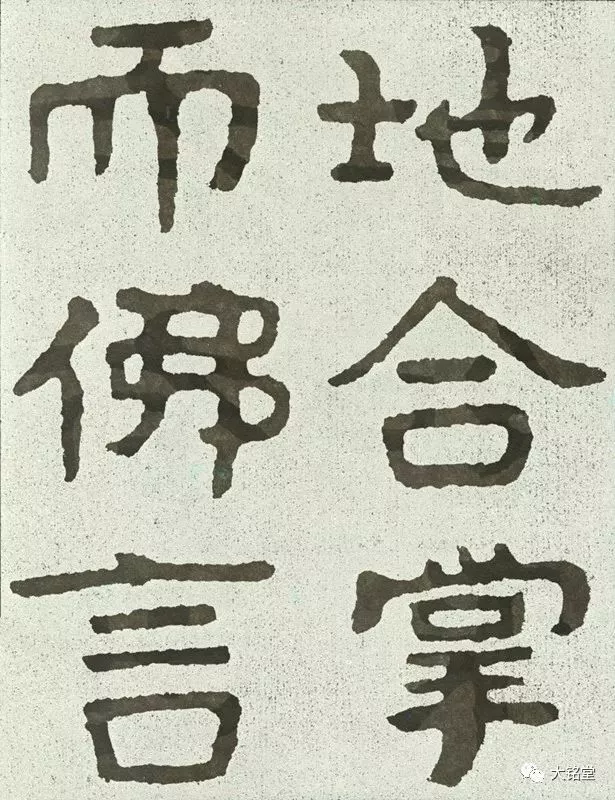 地合掌
而佛言
大铭堂